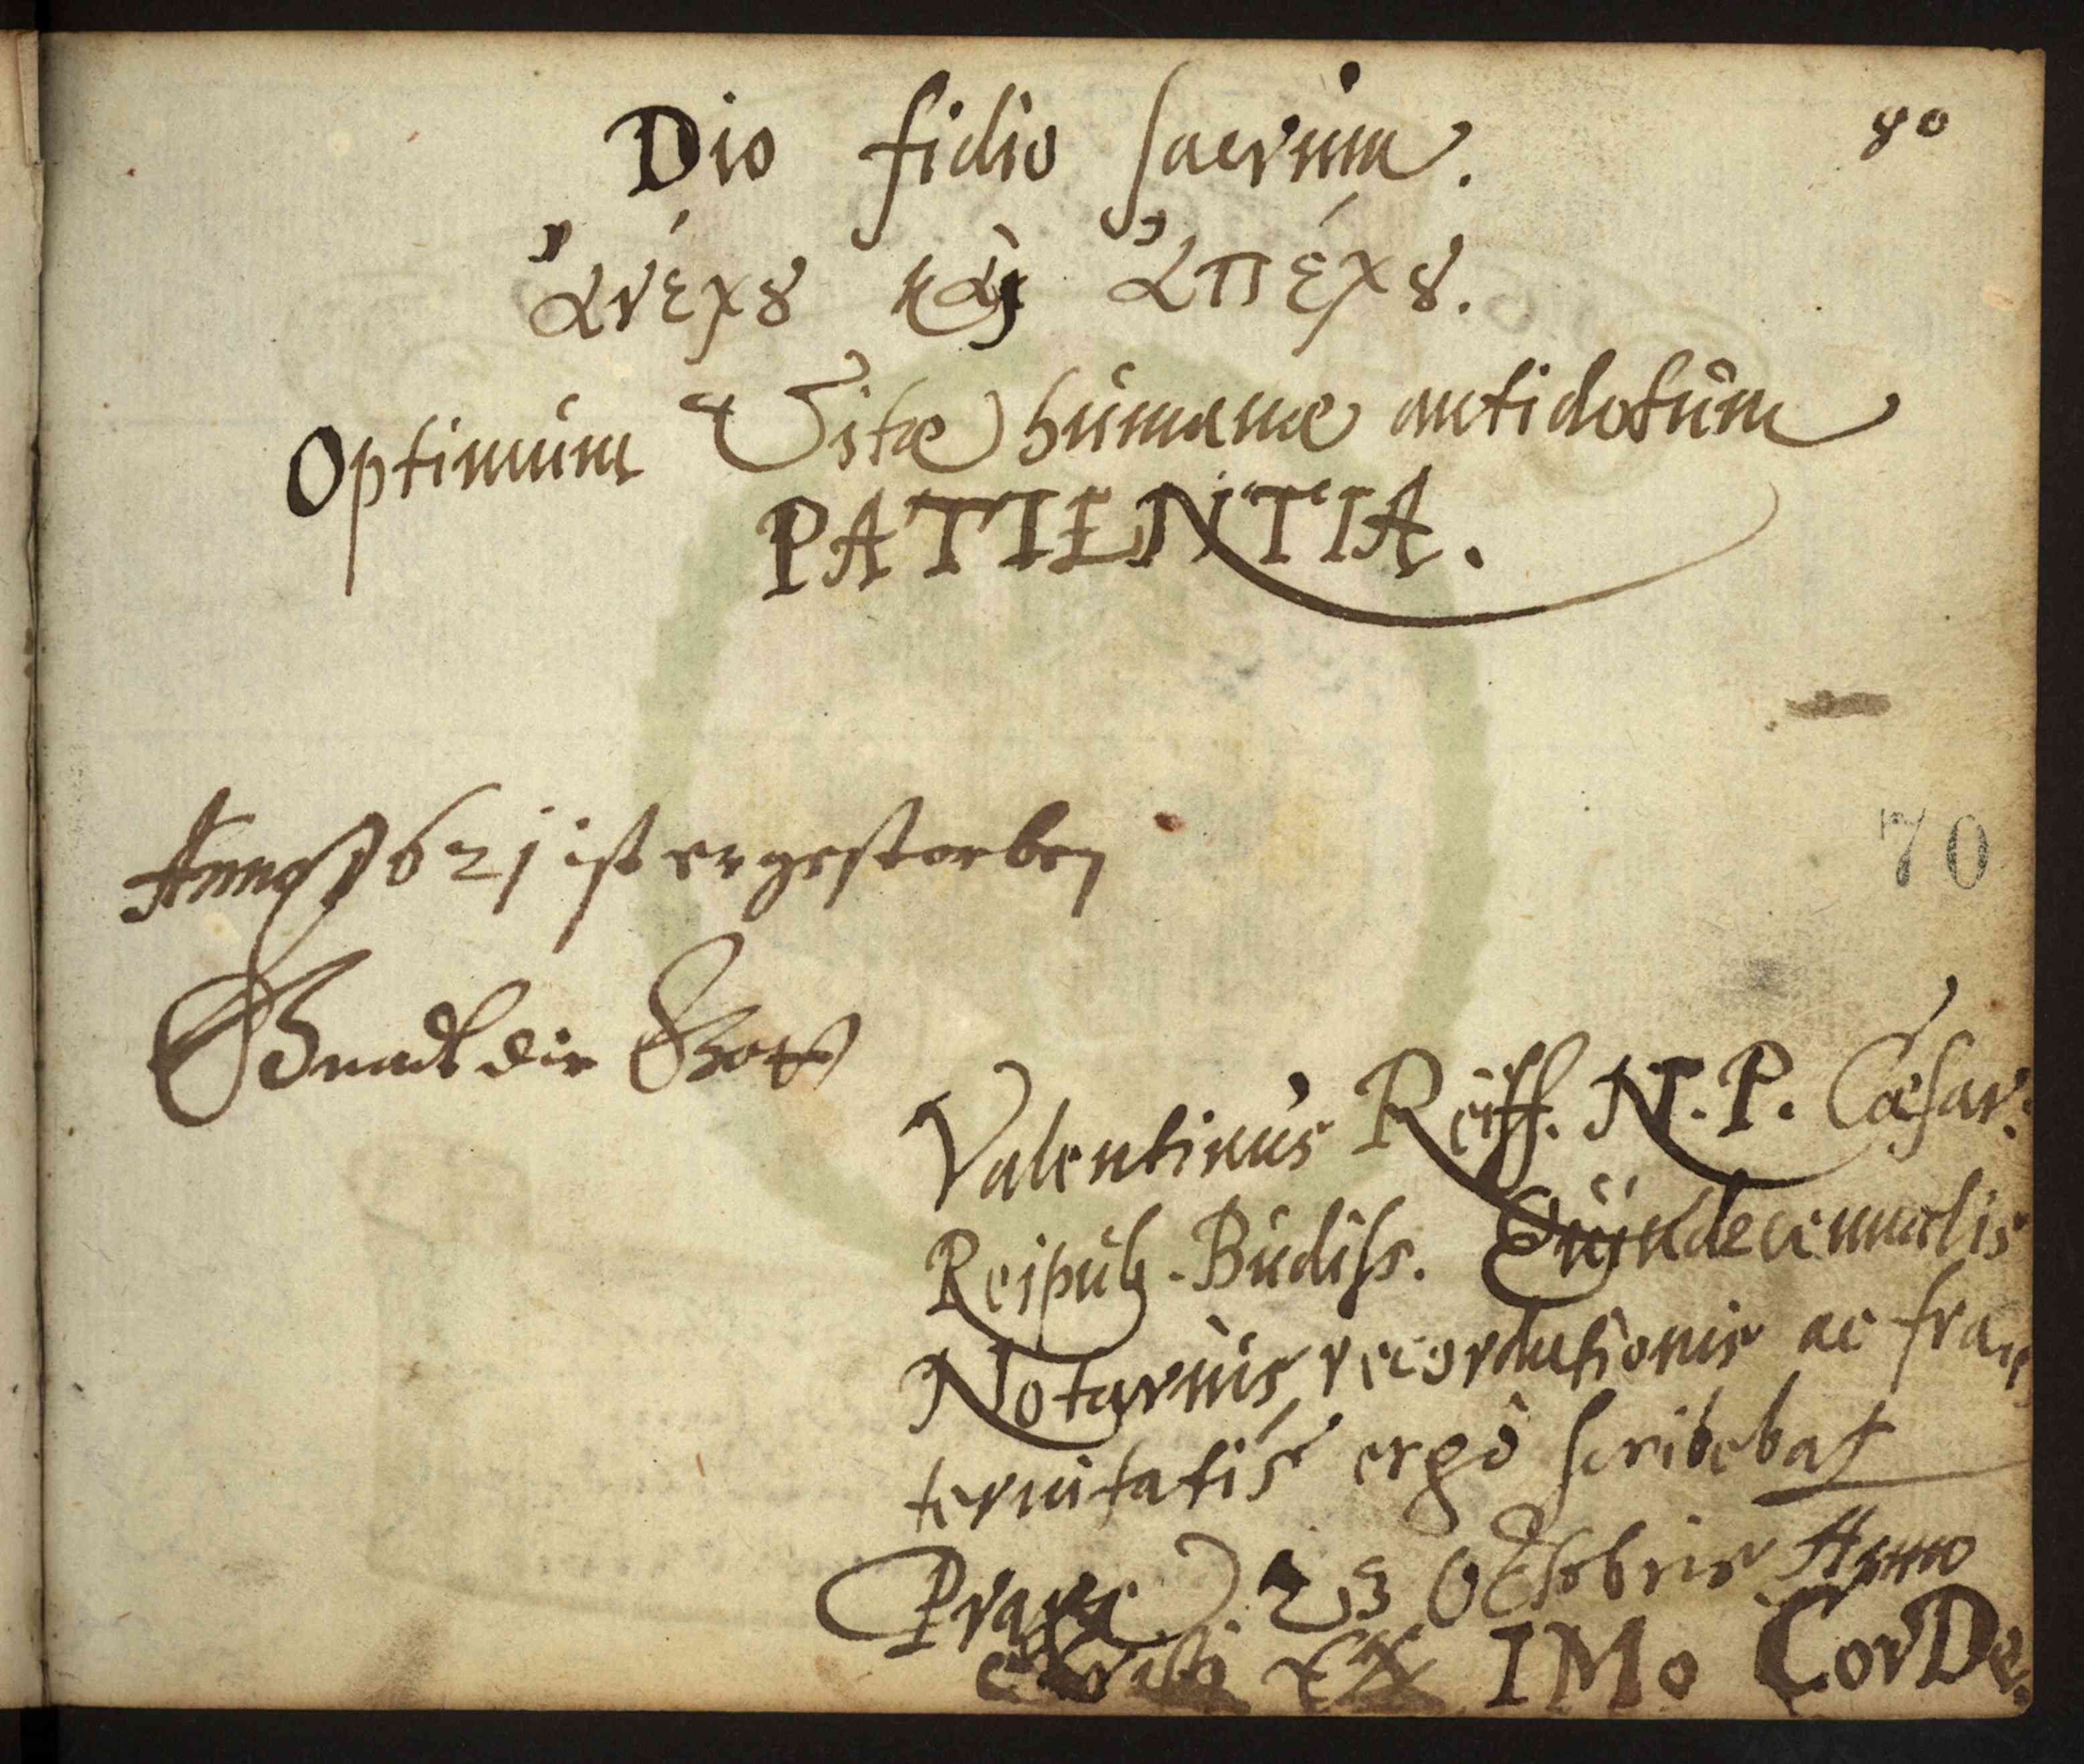 80
Dio fidio sacrum.
ἀνέχȣ καὶ ἀπέχȣ.
Optimum Vitæ humanæ antidotum
PATIENTIA.
Anno 1621 ist er gestorben
70
Gnadt dir Gott
Valentinus Reiff. N. P. Cæsar:
Reipub. Budiss. Quindecimvalis
Notarius recordationis ac fra
ternitatis ergò scribebat
Pragæ. 23 Octobris Anno
Christi IMo CorDe.